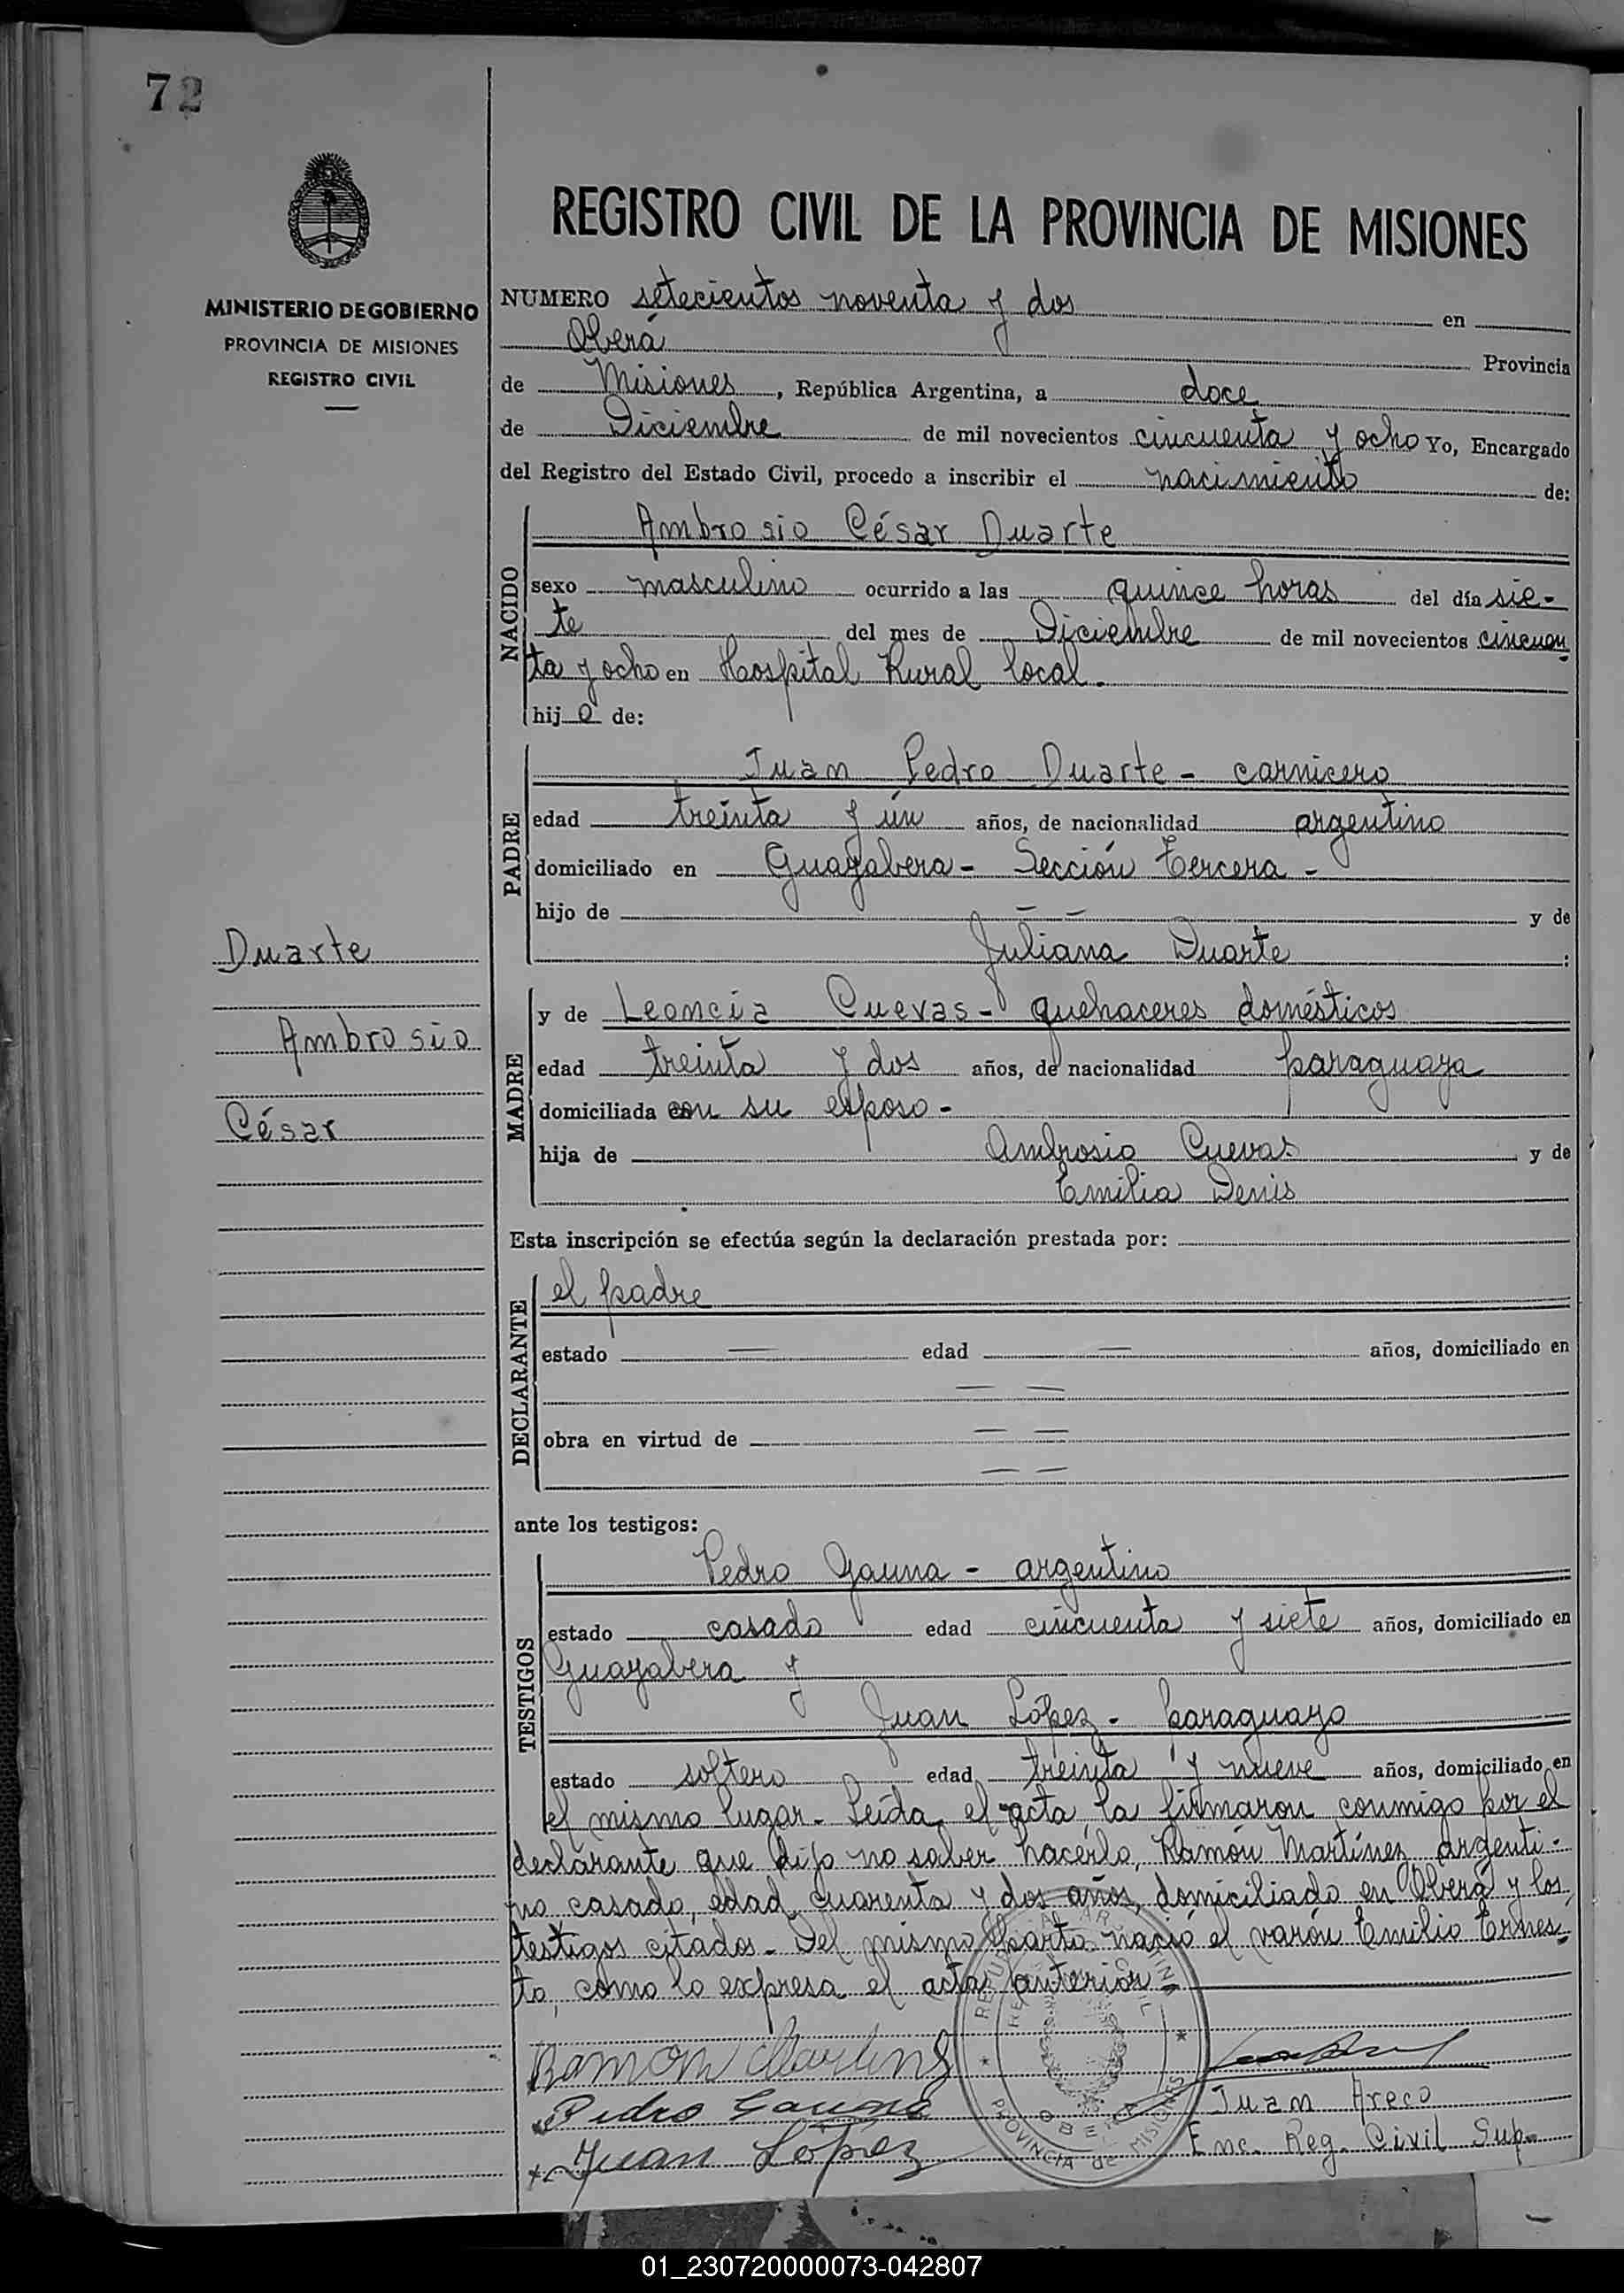 72
MINISTERIO DE GOBIERNO
PROVINCIA DE MISIONES
REGISTRO CIVIL
Duarte
Ambrosio
César
REGISTRO CIVIL DE LA PROVINCIA DE MISIONES
NUMERO setecientos noventa y dos en
Oberá Provincia
de Misiones, República Argentina, a doce
de Diciembre de mil novecientos cincuenta y ocho Yo, Encargado
del Registro del Estado Civil, procedo a inscribir el nacimiento de:
NACIDO
Ambrosio César Duarte
sexo masculino ocurrido a las quince horas del día sie-
te del mes de Diciembre de mil novecientos cincuen
ta y ocho en Hospital Rural local.
hijo de:
PADRE
Juan Pedro Duarte - carnicero
edad treinta y ún años, de nacionalidad argentino
domiciliado en Guayabera - Sección Tercera -
hijo de — — y de
Juliana Duarte :
MADRE
y de Leoncia Cuevas - quehaceres domésticos
edad treinta y dos años, de nacionalidad paraguaya
domiciliada con su esposo -
hija de Ambrosio Cuevas y de
Emilia Denis
Esta inscripción se efectúa según la declaración prestada por:
DECLARANTE
el padre
estado — edad — años, domiciliado en
— —
obra en virtud de — —
— —
ante los testigos:
TESTIGOS
Pedro Gauna - argentino
estado casado edad cincuenta y siete años, domiciliado en
Guayabera y
Juan López - paraguayo
estado soltero edad treinta y nueve años, domiciliado en
el mismo lugar - Leída el acta, la firmaron conmigo por el
declarante que dijo no saber hacerlo, Ramón Martínez argenti-
no casado, edad cuarenta y dos años, domiciliado en Oberá y los
testigos citados - Del mismo parto nació el varón Emilio Ernes-
to, como lo expresa el acta anterior -
Ramon Martins
Pedro Gauna
Juan López
REPUBLICA ARGENTINA
REG. CIVIL
OBERA
PROVINCIA de MISIONES
Juan Areco
Enc. Reg. Civil Sup.
01_230720000073-042807